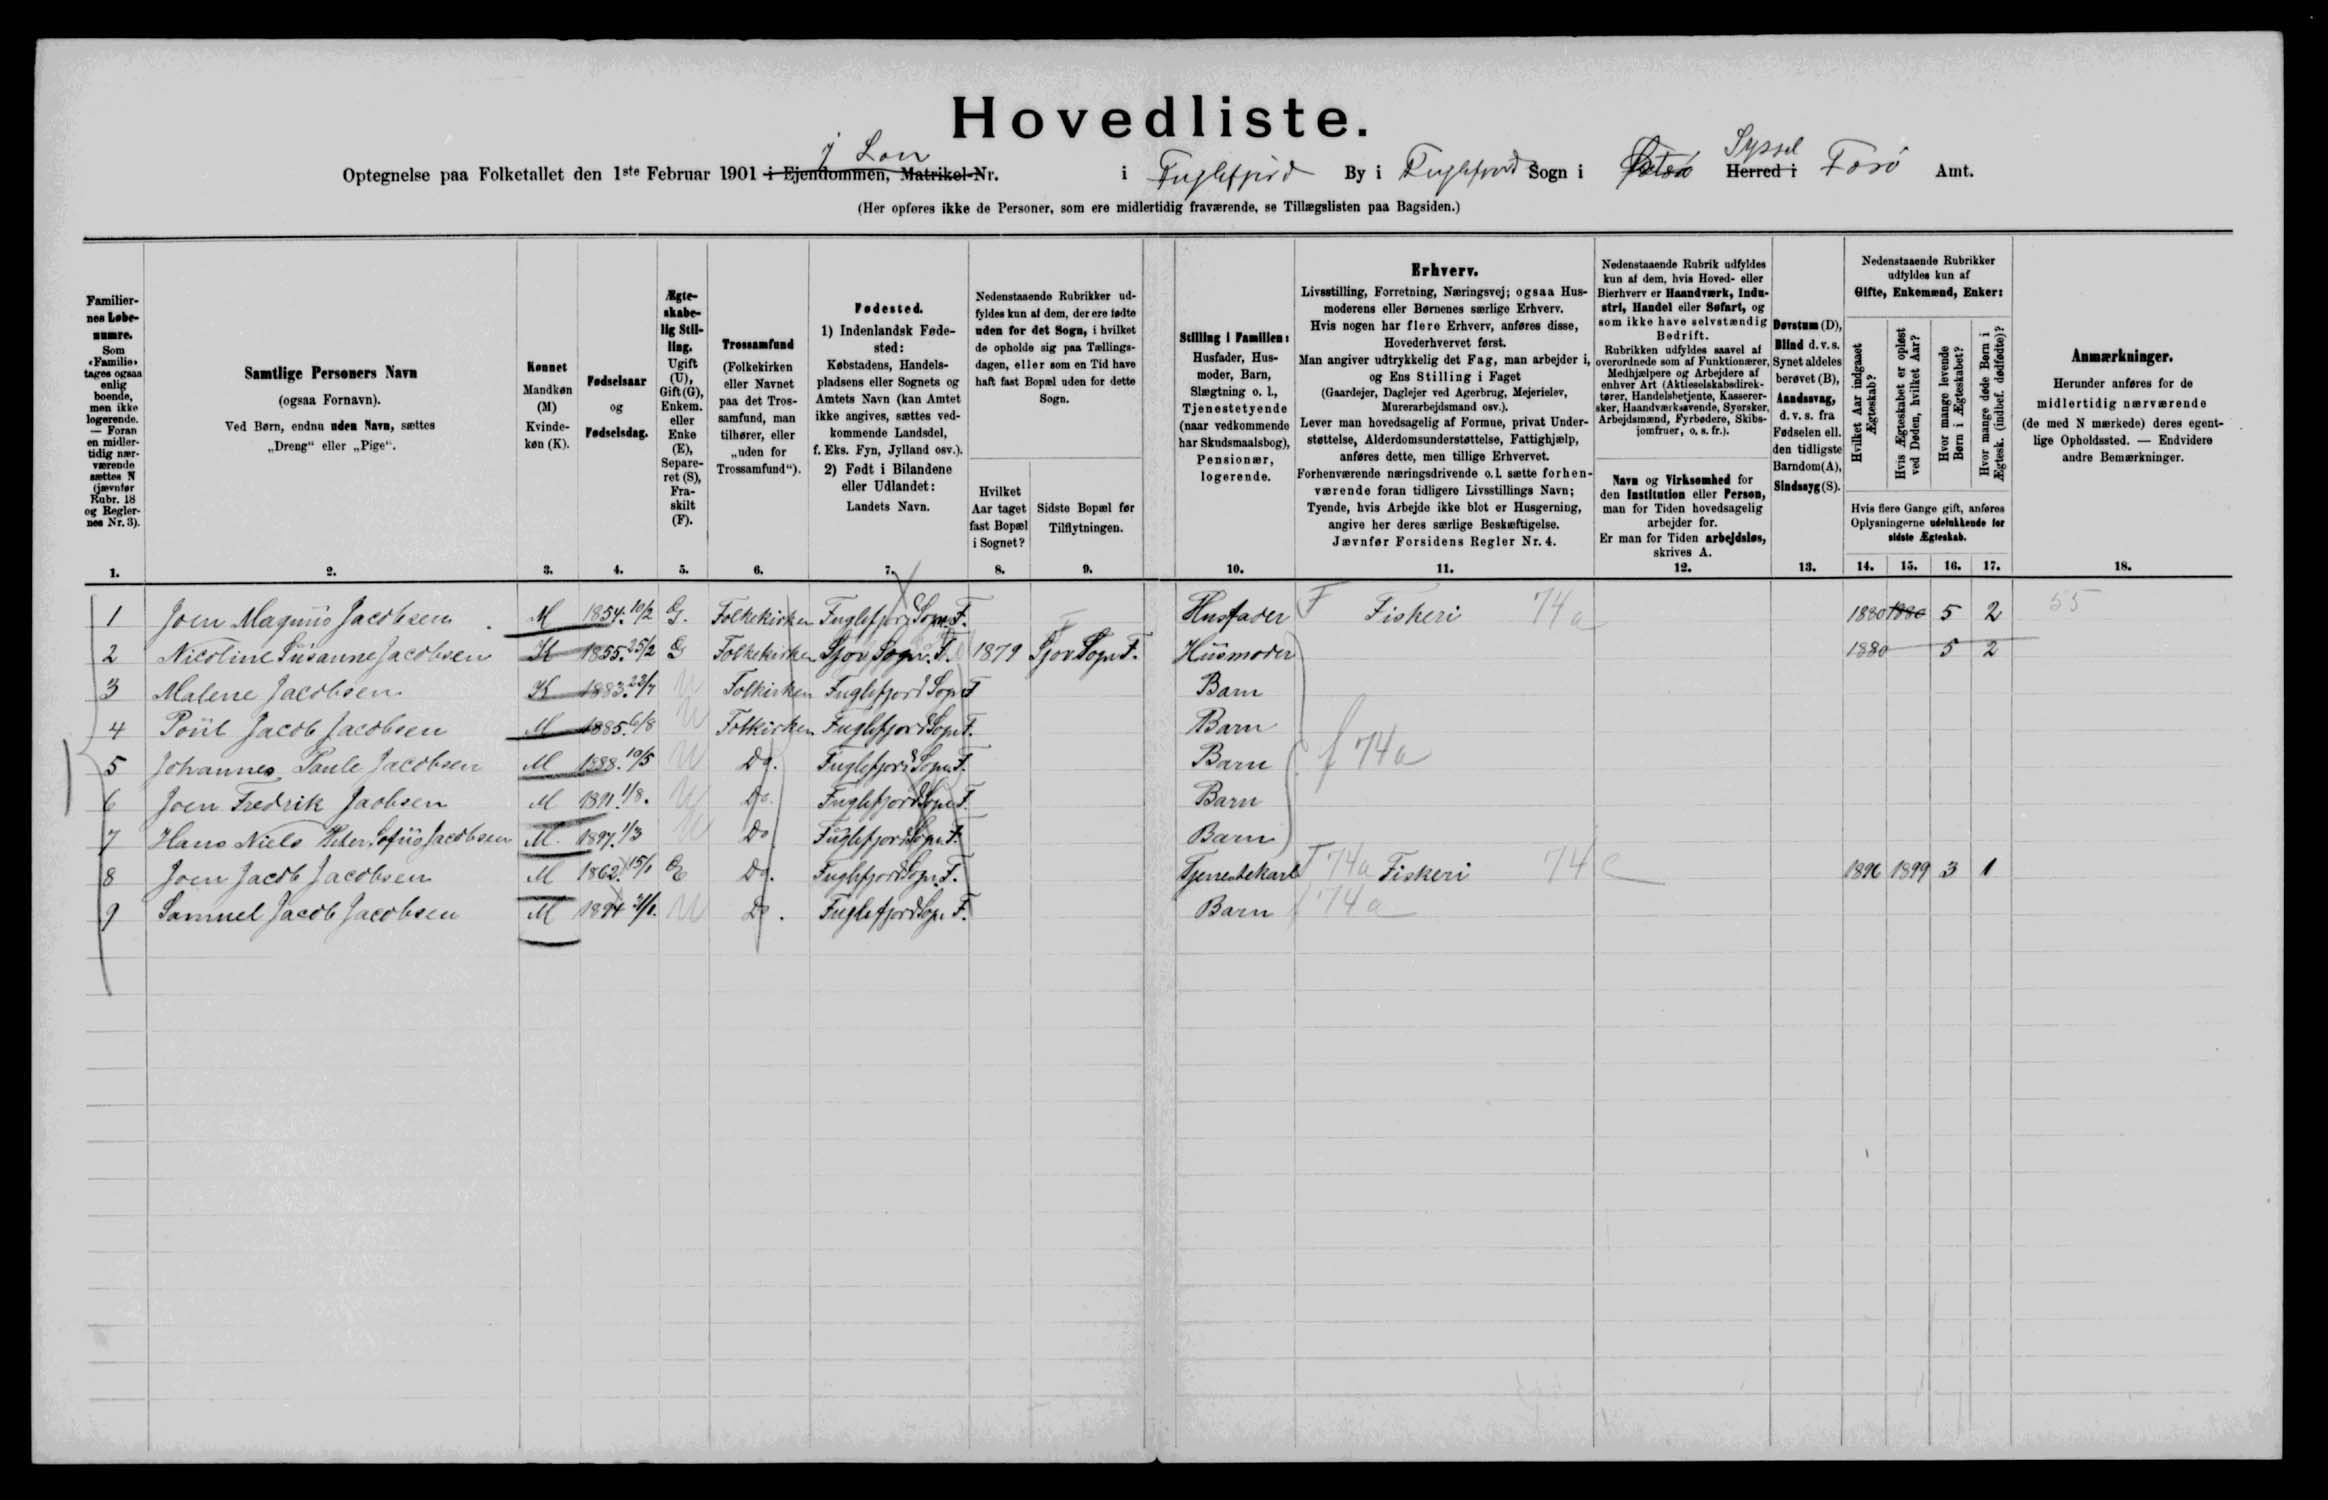 Hovedliste.
Optegnelse paa Folketallet den 1ste Februar 1901 i Ejendommen, Matrikel-Nr. i Fuglefjord By i Fuglefjord Sogn i Østerø Herred i Syssel Færø Amt.
(Her opføres ikke de Personer, som ere midlertidig fraværende, se Tillægslisten paa Bagsiden.)
Familiernes Løbenumre. Som «Familie» tages ogsaa enlig boende, men ikke logerende. — Foran en midlertidig nærværende sættes N (jævnfør Rubr. 18 og Reglernes Nr. 3).
Samtlige Personers Navn (ogsaa Fornavn). Ved Børn, endnu uden Navn, sættes „Dreng“ eller „Pige“.
Kønnet Mandkøn (M) Kvindekøn (K).
Fødselsaar og Fødselsdag.
Ægteskabelig Stilling. Ugift (U), Gift (G), Enkem. eller Enke (E), Separeret (S), Fraskilt (F).
Trossamfund (Folkekirken eller Navnet paa det Trossamfund, man tilhører, eller „uden for Trossamfund“).
Fødested. 1) Indenlandsk Fødested: Købstadens, Handelspladsens eller Sognets og Amtets Navn (kan Amtet ikke angives, sættes vedkommende Landsdel, f. Eks. Fyn, Jylland osv.). 2) Født i Bilandene eller Udlandet: Landets Navn.
Nedenstaaende Rubrikker udfyldes kun af dem, der ere fødte uden for det Sogn, i hvilket de opholde sig paa Tællingsdagen, eller som en Tid have haft fast Bopæl uden for dette Sogn.
Hvilket Aar taget fast Bopæl i Sognet?
Sidste Bopæl før Tilflytningen.
Stilling i Familien: Husfader, Husmoder, Barn, Slægtning o. l., Tjenestetyende (naar vedkommende har Skudsmaalsbog), Pensionær, logerende.
Erhverv.
Livsstilling, Forretning, Næringsvej; ogsaa Husmoderens eller Børnenes særlige Erhverv.
Hvis nogen har flere Erhverv, anføres disse, Hovederhvervet først.
Man angiver udtrykkelig det Fag, man arbejder i, og Ens Stilling i Faget
(Gaardejer, Daglejer ved Agerbrug, Mejerielev, Murerarbejdsmand osv.).
Lever man hovedsagelig af Formue, privat Understøttelse, Alderdomsunderstøttelse, Fattighjælp, anføres dette, men tillige Erhvervet.
Forhenværende næringsdrivende o. l. sætte forhenværende foran tidligere Livsstillings Navn;
Tyende, hvis Arbejde ikke blot er Husgerning, angive her deres særlige Beskæftigelse.
Jævnfør Forsidens Regler Nr. 4.
Nedenstaaende Rubrik udfyldes kun af dem, hvis Hoved- eller Bierhverv er Haandværk, Industri, Handel eller Søfart, og som ikke have selvstændig Bedrift.
Rubrikken udfyldes saavel af overordnede som af Funktionærer, Medhjælpere og Arbejdere af enhver Art (Aktieselskabsdirektører, Handelsbetjente, Kasserersker, Haandværkssvende, Syersker, Arbejdsmænd, Fyrbødere, Skibsjomfruer, o. s. fr.).
Navn og Virksomhed for den Institution eller Person, man for Tiden hovedsagelig arbejder for.
Er man for Tiden arbejdsløs, skrives A.
Døvstum (D), Blind d. v. s. Synet aldeles berøvet (B), Aandssvag, d. v. s. fra Fødselen ell. den tidligste Barndom (A), Sindssyg (S).
Nedenstaaende Rubrikker udfyldes kun af Gifte, Enkemænd, Enker:
Hvilket Aar indgaaet Ægteskab?
Hvis Ægteskabet er opløst ved Døden, hvilket Aar?
Hvor mange levende Børn i Ægteskabet?
Hvor mange døde Børn i Ægtesk. (indbef. dødfødte)?
Hvis flere Gange gift, anføres Oplysningerne udelukkende for sidste Ægteskab.
Anmærkninger.
Herunder anføres for de midlertidig nærværende (de med N mærkede) deres egentlige Opholdssted. — Endvidere andre Bemærkninger.
1. 2. 3. 4. 5. 6. 7. 8. 9. 10. 11. 12. 13. 14. 15. 16. 17. 18.
1 Joen Magnus Jacobsen M 1854. 10/2 G. Folkekirken Fuglefjord Sogn. F. Husfader F Fiskeri 74a 1880 1880 5 2 55
2 Nicoline Susanne Jacobsen K 1855. 25/2 G Folkekirken Gjov Sogn. F. 1879 Gjov Sogn F. Husmoder 1880 5 2
3 Malene Jacobsen K 1883. 23/7 U Folkirken Fuglefjord Sogn F Barn
4 Poul Jacob Jacobsen M 1885. 6/8 U Folkirken Fuglefjord Sogn F. Barn
5 Johannes Paule Jacobsen M 1888. 10/5 U Do. Fuglefjord Sogn. F. Barn f 74a
6 Joen Fredrik Jaobsen M 1891. 1/8. U Do. Fuglefjord Sogn F. Barn
7 Hans Niels Peter Sofus Jacobsen M. 1897. 1/3 U Do Fuglefjord Sogn F. Barn
8 Joen Jacob Jacobsen M 1862. 15/1 E Do. Fuglefjord Sogn. F. Tjenestekarl T 74a Fiskeri 74c 1896 1899 3 1
9 Samuel Jacob Jacobsen M 1894 U Do. Fuglefjord Sogn F. Barn f 74a